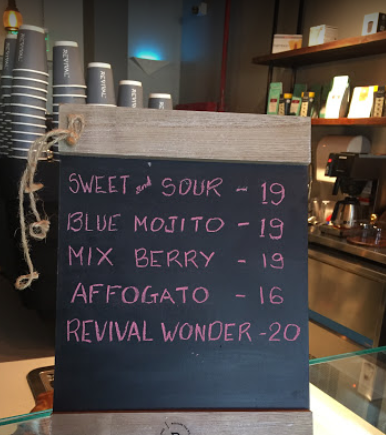 REVIVAL
REVIVAL
SWEET and SOUR - 19
BLUE MOJITO - 19
MIX BERRY - 19
AFFOGATO - 16
REVIVAL WONDER - 20